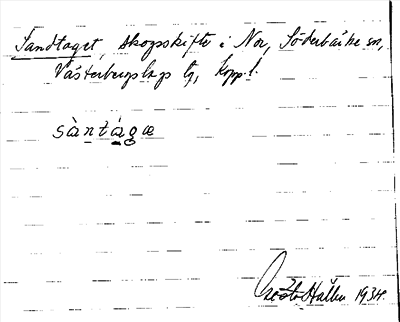 Sandtaget, skogsskifte i Nor, Söderbärke sn,
Västerbergslags tg, Kopp. l.
sàntágæ
Hallen 1934.